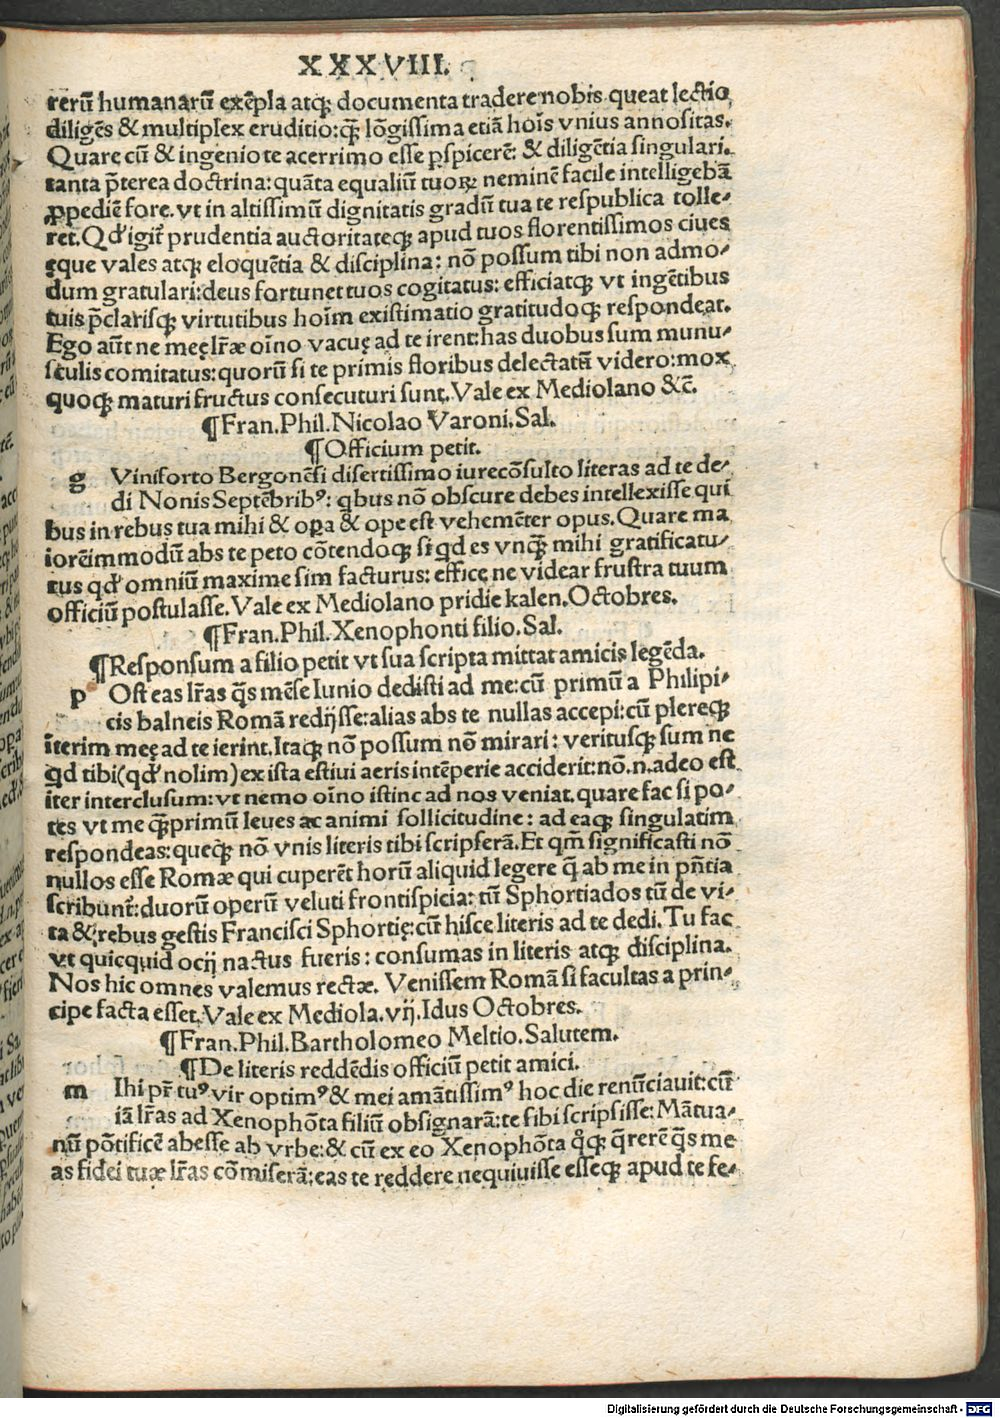 XXXVIII.
rerũ humanarũ exẽpla atq; documenta tradere nobis queat lectio,
diligẽs & multiplex eruditio: q̃ lõgissima etiã hoĩs vnius annositas.
Quare cũ & ingenio te acerrimo esse ꝑspicerẽ: & diligẽtia singulari.
tanta p̃terea doctrina: quãta equaliũ tuoꝝ neminẽ facile intelligebã
ꝓpediẽ fore. vt in altissimũ dignitatis gradũ tua te respublica tolle-
ret. Qđ igit̃ prudentia auctoritateq; apud tuos florentissimos ciues
eque vales atq; eloquẽtia & disciplina: nõ possum tibi non admo-
dum gratulari: deus fortunet tuos cogitatus: efficiatq; vt ingẽtibus
tuis p̃clarisq; virtutibus hoĩm existimatio gratitudoq; respondeat.
Ego aũt ne meę lr̃æ oĩno vacuę ad te irent: has duobus sum munu-
sculis comitatus: quorũ si te primis floribus delectatũ videro: mox
quoq; maturi fructus consecuturi sunt. Vale ex Mediolano &c̃.
¶Fran. Phil. Nicolao Varoni. Sal.
¶Officium petit.
g Viniforto Bergonẽsi disertissimo iurecõsulto literas ad te de-
di Nonis Septẽbribꝰ: qbus nõ obscure debes intellexisse qui
bus in rebus tua mihi & oꝑa & ope est vehemẽter opus. Quare ma
iorẽimmodũ abs te peto cõtendoq; si qd es vnq̃ mihi gratificatu-
rus qđ omniũ maxime sim facturus: effice ne videar frustra tuum
officiũ postulasse. Vale ex Mediolano pridie kalen. Octobres.
¶Fran. Phil. Xenophonti filio. Sal.
¶Responsum a filio petit vt sua scripta mittat amicis legẽda.
p Ost eas lr̃as q̃s mẽse Iunio dedisti ad me: cũ primũ a Philipi-
cis balneis Romã redijsse: alias abs te nullas accepi: cũ plereq;
ĩterim meę ad te ierint. Itaq; nõ possum nõ mirari: veritusq; sum ne
qd tibi (qđ nolim) ex ista estiui aeris intẽperie acciderit: nõ.n. adeo est
iter interclusum: vt nemo oĩno istinc ad nos veniat. quare fac si po-
tes vt me q̃primũ leues ac animi sollicitudine: ad eaq; singulatim
respondeas: queq; nõ vnis literis tibi scripserã. Et qm̃ significasti nõ
nullos esse Romæ qui cuperẽt horũ aliquid legere q̃ ab me in pñtia
scribunt̃: duorũ operũ veluti frontispicia: tũ Sphortiados tũ de vi-
ta & rebus gestis Francisci Sphortię: cũ hisce literis ad te dedi. Tu fac
vt quicquid ocij nactus fueris: consumas in literis atq; disciplina.
Nos hic omnes valemus rectæ. Venissem Romã si facultas a prin-
cipe facta esset. Vale ex Mediola. vij. Idus Octobres.
¶Fran. Phil. Bartholomeo Meltio. Salutem.
¶De literis reddẽdis officiũ petit amici.
m Ihi pr̃ tuꝰ vir optimꝰ & mei amãtissimꝰ hoc die renũciauit: cũ
iã lr̃as ad Xenophõta filiũ obsignarã: te sibi scripsisse: Mãtua-
nũ põtificẽ abesse ab vrbe: & cũ ex eo Xenophõta q̃q; q̃rerẽ q̃s me
as fidei tuæ lr̃as cõmiserã: eas te reddere nequiuisse esseq; apud te fe-
Digitalisierung gefördert durch die Deutsche Forschungsgemeinschaft - DFG